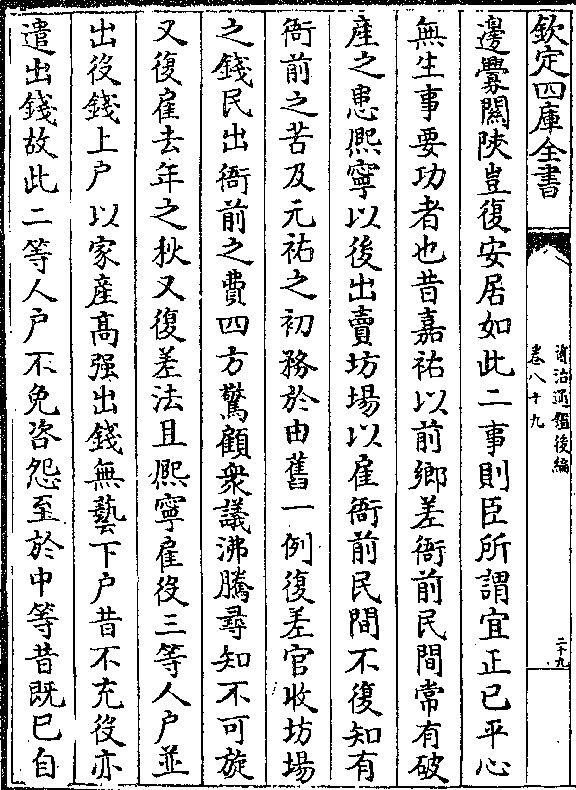 欽定四庫全書
資治通鑑後編
卷八十九
二十九
邊釁關陜豈復安居如此二事則臣所謂宜正已平心
無生事要功者也昔嘉祐以前鄉差衙前民間常有破
產之患熙寧以後出賣坊場以雇衙前民間不復知有
衙前之苦及元祐之初務於由舊一例復差官收坊場
之錢民出衙前之費四方驚顧衆議沸騰尋知不可旋
又復雇去年之秋又復差法且熙寧雇役三等人戶並
出役錢上戶以家產高强出錢無藝下戶昔不充役亦
遣出錢故此二等人戶不免咨怨至於中等昔既已自